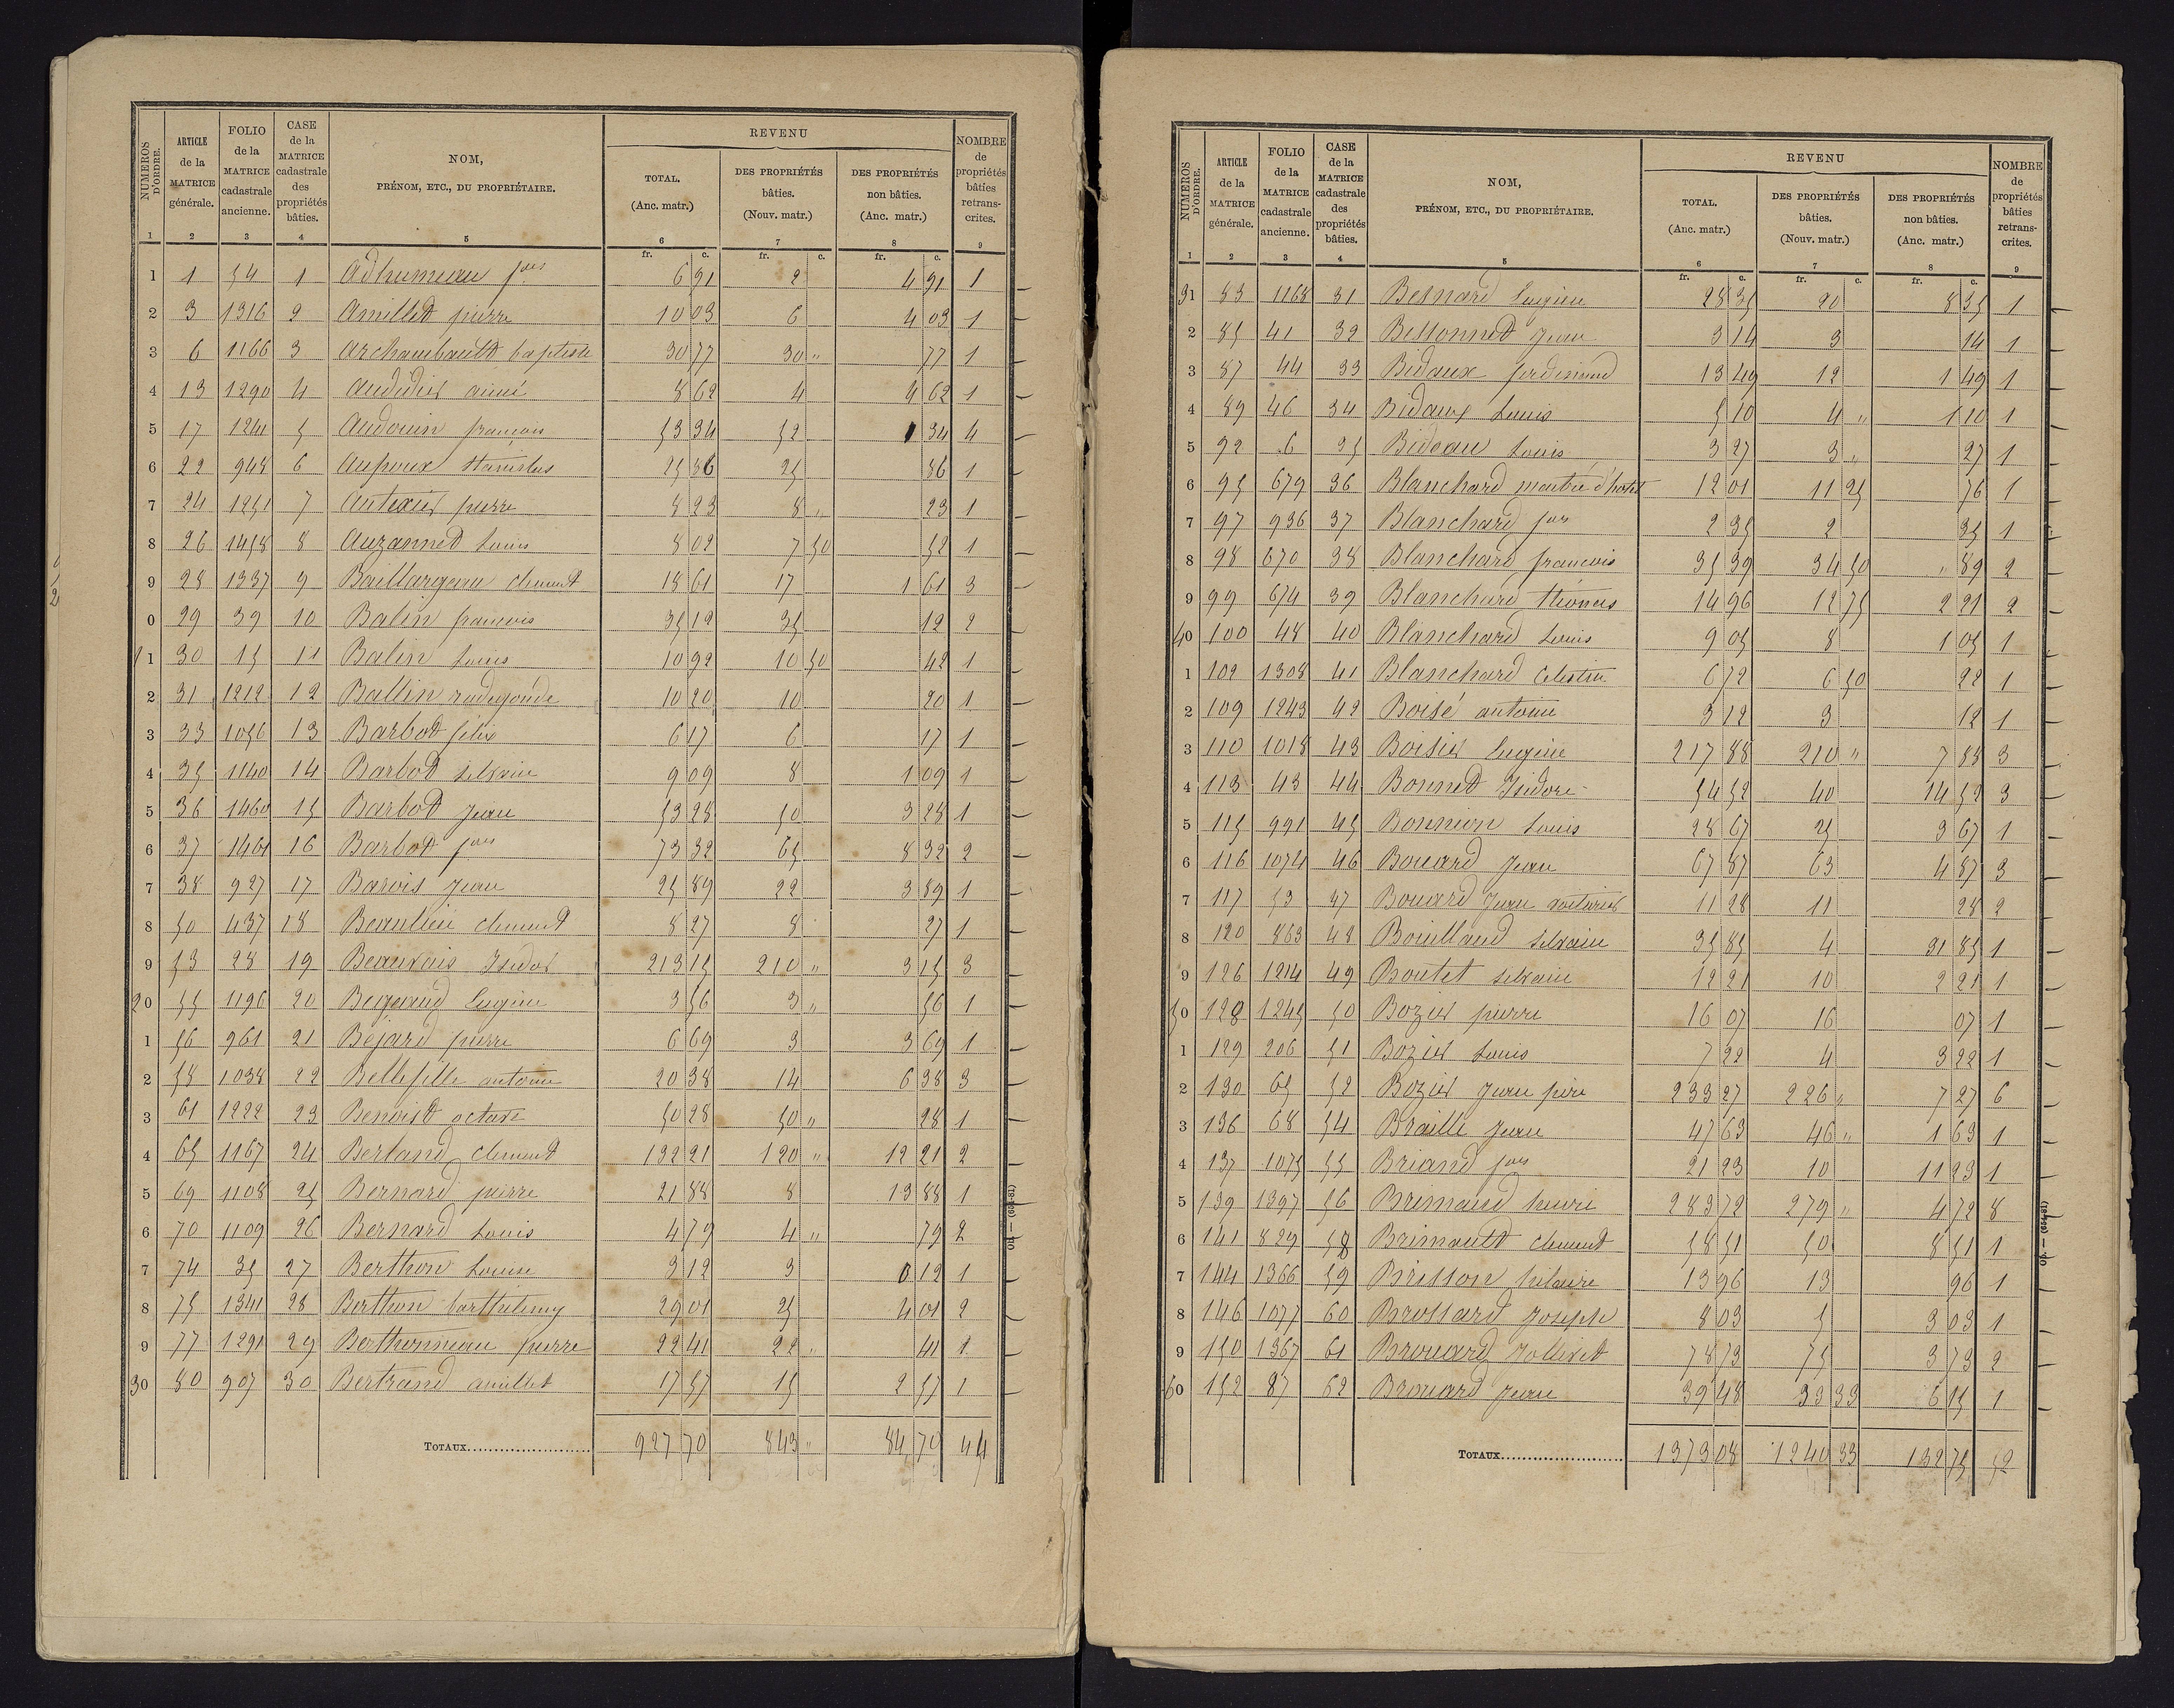 NUMEROS D'ORDRE. | ARTICLE de la MATRICE générale. | FOLIO de la MATRICE cadastrale ancienne. | CASE de la MATRICE cadastrale des propriétés bâties. | NOM, PRÉNOM, ETC., DU PROPRIÉTAIRE. | REVENU | NOMBRE de propriétés bâties retranscrites.
TOTAL. (Anc. matr.) | DES PROPRIÉTÉS bâties. (Nouv. matr.) | DES PROPRIÉTÉS non bâties. (Anc. matr.)
1 2 3 4 5 6 7 8 9
fr. c. fr. c. fr. c.
1 1 54 1 Adhumeau fois 6 91 2 4 91 1
2 3 1316 2 Amillet pierre 10 03 6 4 03 1
3 6 1166 3 Archambault baptiste 30 77 30 " 77 1
4 13 1290 4 Audidier aimé 8 62 4 4 62 1
5 17 1241 5 Audouin françois 53 34 52 1 34 4
6 22 948 6 Aupoux stanislas 25 36 25 36 1
7 24 1251 7 Autexier pierre 8 23 8 " 23 1
8 26 1458 8 Auzannet Louis 8 02 7 50 52 1
9 28 1337 9 Baillargeau clement 18 61 17 1 61 3
0 29 39 10 Balin francois 35 12 35 12 2
11 30 15 11 Balin Louis 10 92 10 50 42 1
2 31 1212 12 Ballin radegonde 10 20 10 20 1
3 33 1056 13 Barbot félix 6 17 6 17 1
4 35 1140 14 Barbot silvain 9 09 8 1 09 1
5 36 1460 15 Barbot Jean 53 28 50 3 28 1
6 37 1461 16 Barbot fois 73 32 65 8 32 2
7 38 927 17 Barois Jean 25 89 22 3 89 1
8 50 437 18 Beaulieu clement 8 27 8 27 1
9 53 28 19 Beauvais Isidor 213 15 210 " 3 15 3
20 55 1196 20 Begeaud Eugène 3 56 3 " 56 1
1 56 961 21 Bejard pierre 6 69 3 3 69 1
2 58 1038 22 Bellefille antoine 20 38 14 6 38 3
3 61 1222 23 Benoist octave 50 28 50 " 28 1
4 65 1167 24 Berland Clement 132 21 120 " 12 21 2
5 69 1108 25 Bernard pierre 21 88 8 13 88 1
6 70 1109 26 Bernard Louis 4 79 4 " 79 2
7 74 35 27 Berthon Louise 3 12 3 0 12 1
8 75 1341 28 Berthon barthelemy 29 01 25 4 01 2
9 77 1291 29 Berthonneau pierre 22 41 22 41 1
30 80 907 30 Bertrand amillet 17 57 15 2 57 1
TOTAUX 927 70 843 " 84 70 44
OH — (654-81)
NUMEROS D'ORDRE. | ARTICLE de la MATRICE générale. | FOLIO de la MATRICE cadastrale ancienne. | CASE de la MATRICE cadastrale des propriétés bâties. | NOM, PRÉNOM, ETC., DU PROPRIÉTAIRE. | REVENU | NOMBRE de propriétés bâties retranscrites.
TOTAL. (Anc. matr.) | DES PROPRIÉTÉS bâties. (Nouv. matr.) | DES PROPRIÉTÉS non bâties. (Anc. matr.)
1 2 3 4 5 6 7 8 9
fr. c. fr. c. fr. c.
31 83 1168 31 Besnard Eugène 28 35 20 8 35 1
2 85 41 32 Bessonnet Jean 3 14 3 14 1
3 87 44 33 Bidaux ferdinand 13 49 12 1 49 1
4 89 46 34 Bidaux Louis 5 10 4 " 1 10 1
5 92 6 35 Bideau Louis 3 27 3 " 27 1
6 95 679 36 Blanchard maitre d'hotel 12 01 11 25 76 1
7 97 936 37 Blanchard fois 2 35 2 35 1
8 98 670 38 Blanchard francois 35 39 34 50 " 89 2
9 99 674 39 Blanchard thomas 14 96 12 75 2 21 2
40 100 48 40 Blanchard Louis 9 05 8 1 05 1
1 102 1308 41 Blanchard Celestin 6 72 6 50 22 1
2 109 1243 42 Boisé antoine 3 12 3 12 1
3 110 1018 43 Boisier Eugène 217 88 210 " 7 88 3
4 113 43 44 Bonnet Isidore 54 52 40 14 52 3
5 115 991 45 Bonnion Louis 28 67 25 3 67 1
6 116 1074 46 Bouard Jean 67 87 63 4 87 3
7 117 53 47 Bouard Jean voiturier 11 28 11 28 2
8 120 863 48 Bouillaud silvain 35 85 4 31 85 1
9 126 1214 49 Boutet silvain 12 21 10 2 21 1
50 128 1245 50 Bozier pierre 16 07 16 07 1
1 129 206 51 Bozier Louis 7 22 4 3 22 1
2 130 65 52 Bozier Jean père 233 27 226 " 7 27 6
3 136 68 54 Braille Jean 47 63 46 " 1 63 1
4 137 1075 55 Briand fois 21 23 10 11 23 1
5 139 1397 56 Brimaud henri 283 72 279 " 4 72 8
6 141 829 58 Brimault clement 58 51 50 8 51 1
7 144 1366 59 Brisson hilaire 13 96 13 96 1
8 146 1077 60 Brossard Joseph 8 03 5 3 03 1
9 150 1367 61 Brouard Jollivet 78 73 75 3 73 2
60 152 87 62 Brouard Jean 39 48 33 33 6 15 1
TOTAUX 1373 08 1240 33 132 75 52
OH — (654-81)